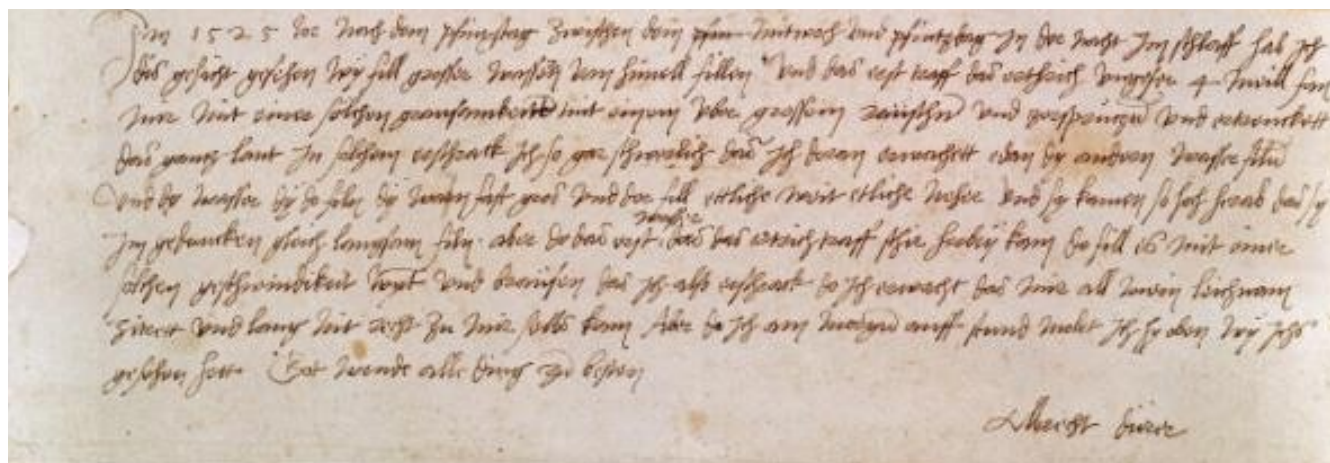 Im 1525 Jor nach dem pfinxstag zwischen dem Mitwoch und pfintztag in der nacht im schlaff hab ich
dis gesicht gesehen wy fill grosser wassern vom himell fillen Und das erst traff das erthrich ungefer 4 meill fan
mir mit einer solchen grausamkeitt mit einem uber grossem raüschn und zersprützn und ertrenckett
das gannz lant In solchem erschrack ich so gar schwerlich das ich doran erwachett edan dy andern wasser filn
Und dy wasser dy do filn dy warn fast gros und der fill ettliche weit etliche neher und sy kamen so hoch herab das sy
im gedancken gleich langsam filn. aber do das erst wasser das das ertrich traff schir herbey kam do fill es mit einer
solchen geschwindikeit wynt und braüsen das ich also erschrack do ich erwacht das mir all mein leichnam
zitrett und lang nit recht zu mir selbs kam Aber do ich am morgn auff stund malet ich hy oben wy ichs
gesehen hett. Got wende alle ding zu besten
Albrecht dürer